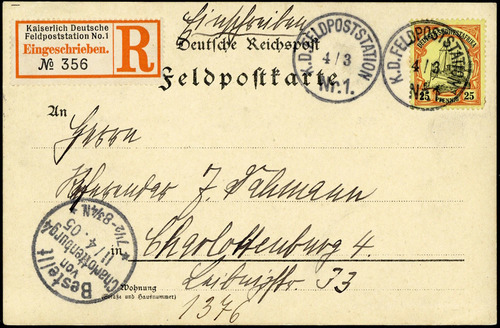 Einschreiben
Kaiserlich Deutsche
Feldpoststation No. 1
Eingeschrieben.
№ 356
R
Deutsche Reichspost
Feldpostkarte
K.D. FELDPOSTSTATION
4/3
Nr. 1.
K.D. FELDPOSTSTATION
4/3
Nr. 1.
25
PFENNIG
25
An
Herrn
Referendar J. Dahmann
in Charlottenburg 4.
Leibnizstr. 33
Wohnung
(Straße und Hausnummer)
1376
Bestellt
von
Charlottenburg 4
11/4.05
* 7½-8¾N. *